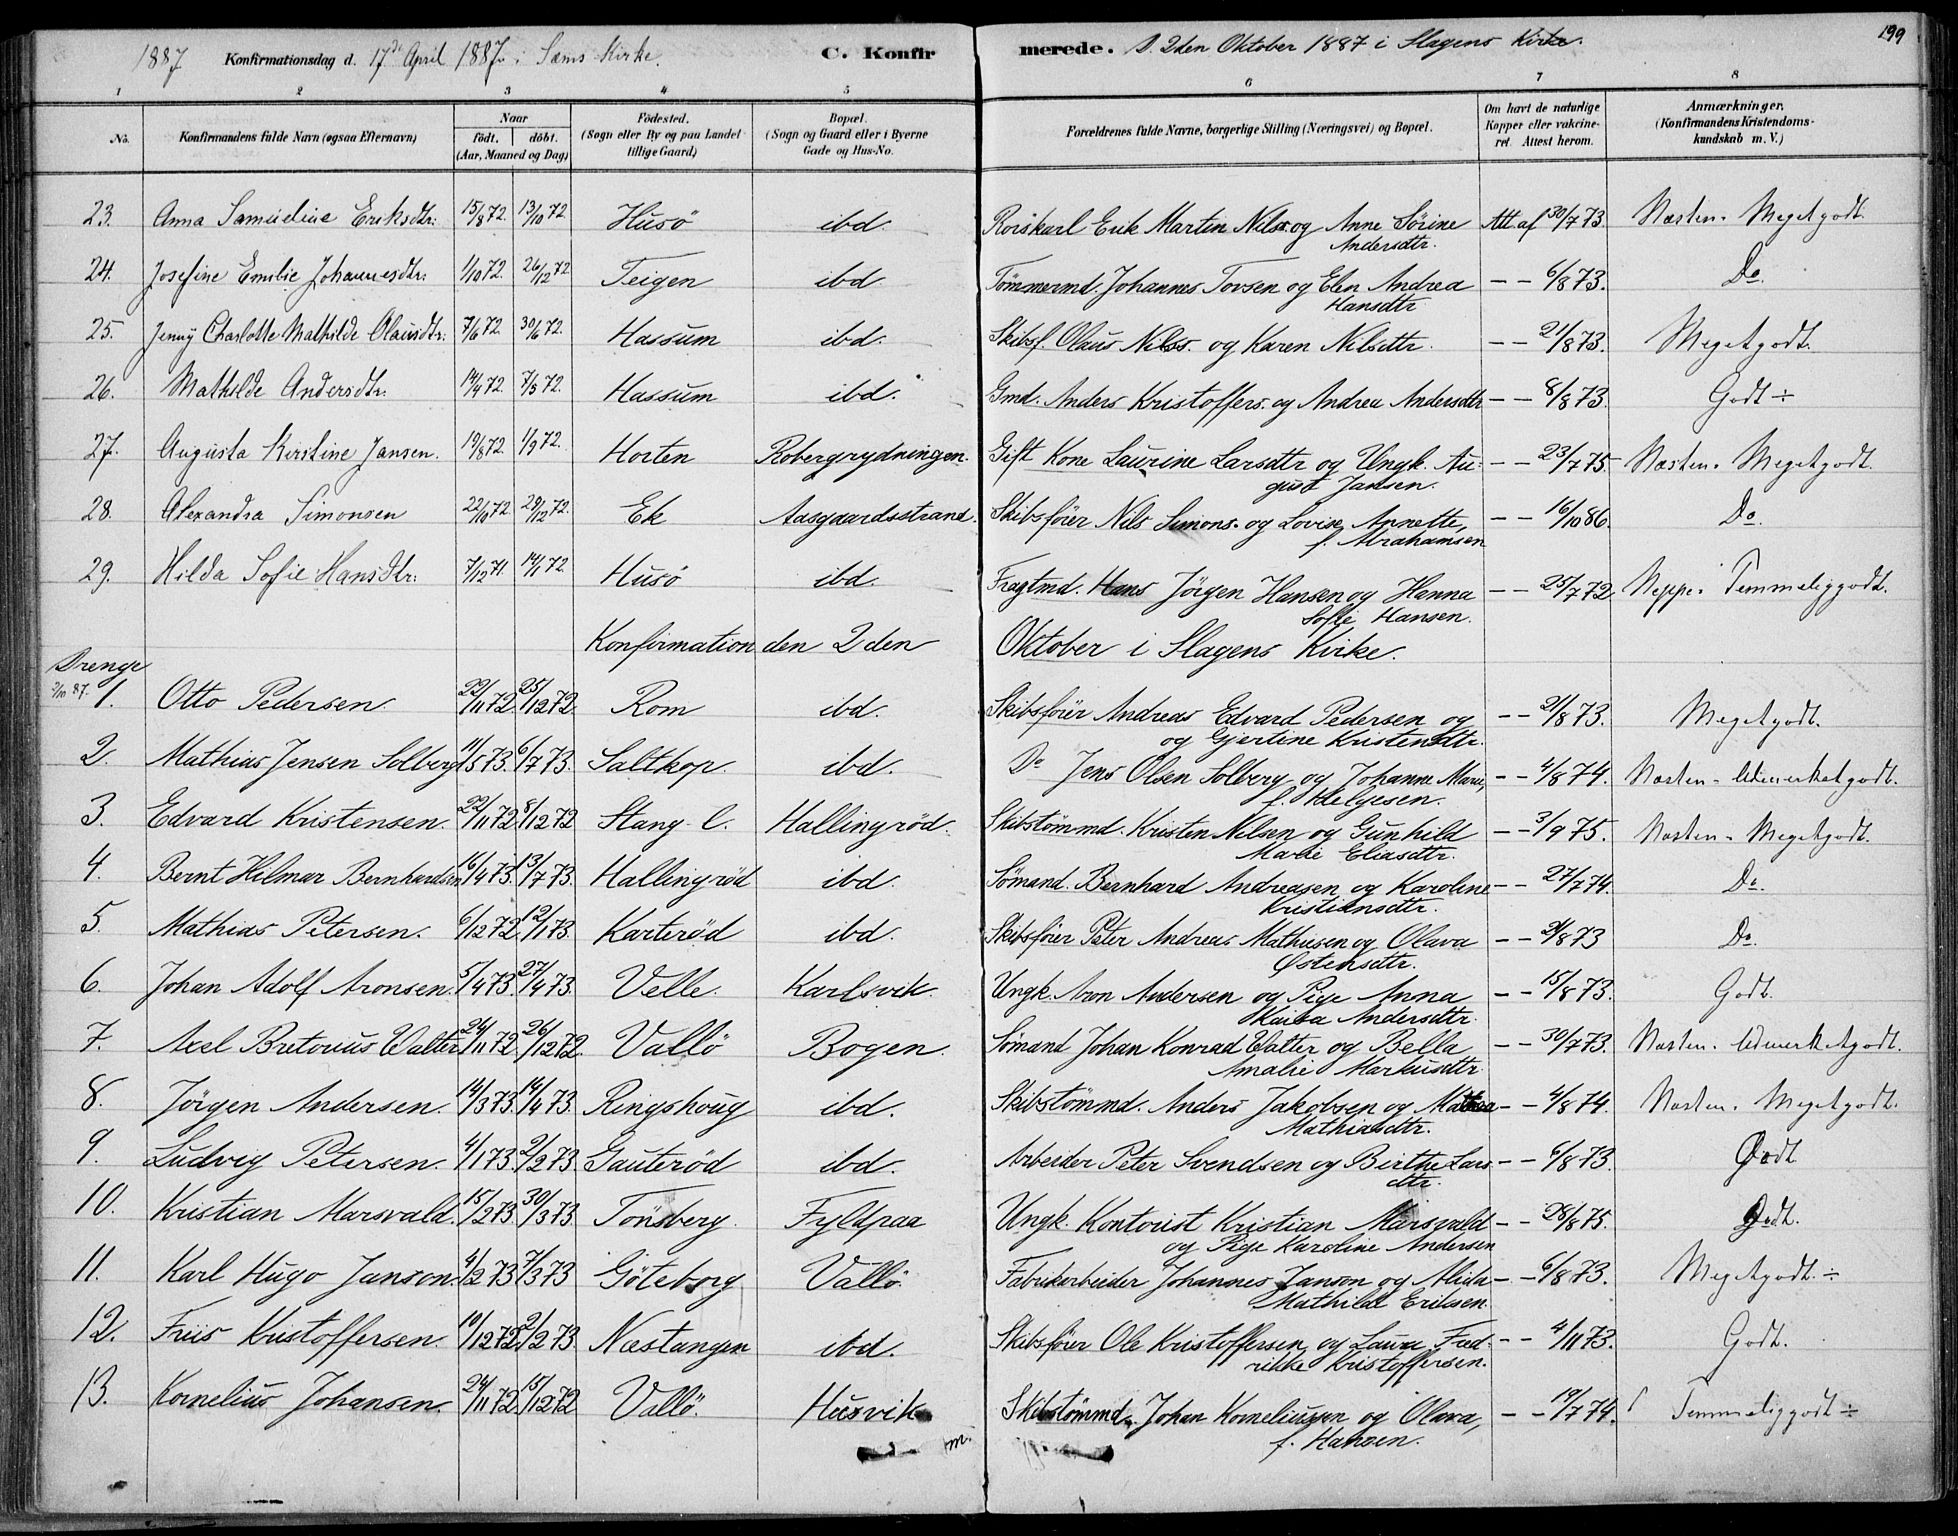 199
1887 Konfirmationsdag d. 17de April 1887 i Sems Kirke. C. Konfirmerede. d. 2den Oktober 1887 i Slagens Kirke.
1 2 3 4 5 6 7 8
No. Konfirmandens fulde Navn (ogsaa Efternavn) Naar födt. döbt. (Aar, Maaned og Dag) Födested. (Sogn eller By og paa Landet tillige Gaard) Bopæl. (Sogn og Gaard eller i Byerne Gade og Hus-No. Forældrenes fulde Navne, borgerlige Stilling (Næringsvei) og Bopæl. Om havt de naturlige Kopper eller vakcineret. Attest herom. Anmærkninger. (Konfirmandens Kristendomskundskab m. V.)
23. Anna Samueline Eriksdtr. 15/8 72. 13/10 72 Husö ibd. Rorskarl Erik Martin Nilss. og Anne Sörine Att. af 30/7 73. Næsten Meget godt.
Andersdtr.
24. Josefine Emilie Johannesdtr. 1/10 72. 26/12 72 Teigen ibd. Tömmermd. Johannes Tovsen og Elen Andrea – – 6/8 73. Do.
Hansdtr
25. Jenny Charlotte Mathilde Olausdtr. 7/6 72. 30/6 72. Hassum ibd. Skibsf. Olaus Nilss. og Karen Nilsdtr. – – 21/8 73. Meget godt.
26. Mathilde Andersdtr. 14/4 72. 7/5 72. Hassum ibd. Gmd. Anders Kristoffers. og Andrea Andersdtr – – 8/8 73. Godt ÷
27. Augusta Kirstine Jansen. 19/8 72. 1/9 72. Horten Robergrydningen. Gift Kone Laurine Larsdtr og Ungk. Au- – – 23/7 75. Næsten Meget godt.
gust Jansen.
28. Alexandra Simonsen 22/10 72. 29/12 72. Ek Aasgaardsstrand. Skibsförer Nils Simons. og Lovise Annette, – – 16/10 86. Do.
f. Abrahamsen
29. Hilda Sofie Hansdtr. 7/12 71. 14/1 72. Husö ibd. Fragtmd. Hans Jörgen Hansen og Hanna – – 25/7 72 Neppe Temmelig godt.
Sofie Hansen.
Konfirmation den 2den Oktober i Slagens Kirke.
Drenge
2/10 87. 1. Otto Pedersen 22/11 72. 25/12 72. Rom ibd. Skibsförer Andreas Edvard Pedersen og – – 21/8 73. Meget godt.
og Gjertine Kristensdtr.
2. Mathias Jensen Solberg 11/5 73. 6/7 73. Saltkop. ibd. Do Jens Olsen Solberg og Johanne Marie, – – 4/8 74. Næsten Udmerket godt.
f. Helgesen.
3. Edvard Kristensen. 22/11 72. 8/12 72 Stang l. Hallingröd. Skibstömmd. Kristen Nilsen og Gunhild – – 3/9 75. Næsten Meget godt.
Malie Eliasdtr.
4. Bernt Hilmar Bernhardsen 16/4 73. 13/7 73. Hallingröd ibd. Sömand. Bernhard Andreasen og Karoline – – 27/7 74. Do.
Kristiansdtr.
5. Mathias Petersen. 6/12 72. 12/1 73. Karteröd ibd. Skibsförer Peter Andreas Mathisen og Olava – – 21/8 73 Do.
Østensdtr.
6. Johan Adolf Aronsen. 5/4 73. 27/4 73. Velle. Karlsvik. Ungk. Aron Andersen og Pige Anna – – 15/8 73. Godt.
Maria Andersdtr.
7. Axel Bretorius Walter 24/11 72. 26/12 72. Vallö Bogen. Sömand Johan Konrad Walter og Bella – – 30/7 73. Næsten Udmerket godt.
Amalie Markusdtr.
8. Jörgen Andersen. 14/3 73. 14/4 73. Ringshoug ibd. Skibstömmd. Anders Jakobsen og Mathea – – 4/8 74. Næsten Meget godt.
Mathiasdtr.
9. Ludvig Petersen. 4/1 73. 2/2 73. Gauteröd ibd. Arbeider Peter Svendsen og Birthe Lars- – – 6/8 73. Godt
dtr.
10. Kristian Marsvald. 15/2 73. 30/3 73 Tönsberg. Fyldpaa Ungk. Kontorist Kristian Marsvald – – 28/8 75. Godt.
og Pige Karoline Andersen
11. Karl Hugo Janson. 4/2 73. 7/3 73 Göteborg Vallö. Fabrikarbeider Johannes Janson og Alida – – 6/8 73. Meget godt. ÷
Mathilde Eriksen.
12. Friis Kristoffersen. 10/12 72. 2/2 73. Næstangen ibd. Skibsförer Ole Kristoffersen og Laura Fred- – – 4/11 73. Godt.
rikke Kristoffersen.
13. Kornelius Johansen. 24/11 72. 15/12 72 Vallö. Husvik Skibstömmd. Johan Korneliussen og Olava, – – 19/7 74. Temmelig godt ÷
m. f. Hansen.